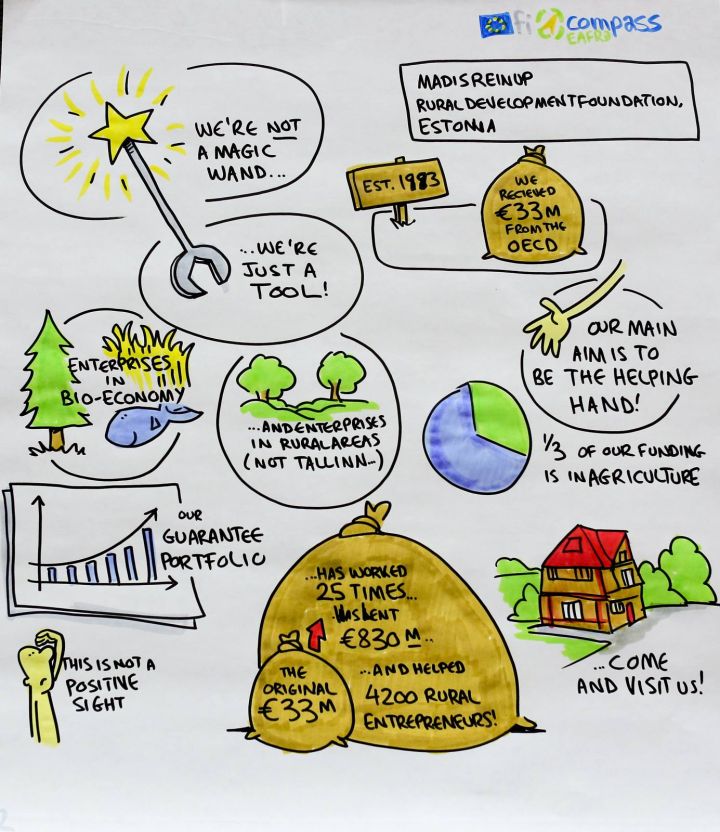 fi compass
EAFRD
MADIS REINUP
RURAL DEVELOPMENT FOUNDATION,
ESTONIA
WE'RE NOT
A MAGIC
WAND...
EST. 1983
WE
RECIEVED
€33M
FROM THE
OECD
...WE'RE
JUST A
TOOL!
OUR MAIN
AIM IS TO
BE THE HELPING
HAND!
ENTERPRISES
IN
BIO-ECONOMY
...AND ENTERPRISES
IN RURAL AREAS
(NOT TALLINN...)
1/3 OF OUR FUNDING
IS IN AGRICULTURE
OUR
GUARANTEE
PORTFOLIO
THIS IS NOT A
POSITIVE
SIGHT
...HAS WORKED
25 TIMES...
LENT
€830M...
...AND HELPED
4200 RURAL
ENTREPRENEURS!
THE
ORIGINAL
€33M
...COME
AND VISIT US!